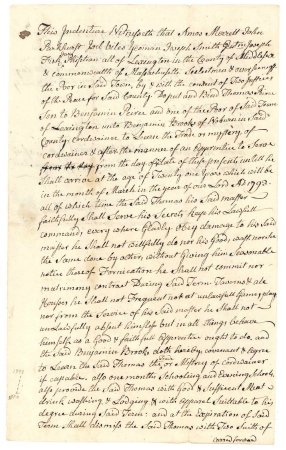 This Indenture Witnesseth that Amos Marrett John
Parkhurst Joel Viles Yeoman Joseph Smith Joseph
Fisk Physitian all of Lexington in the County of Middlesex
& commonwealth of Massachusetts Selectmen & overseers of
the Poor in Said Town, by & with the consent of Two Justices
of the Peace for Said County Do put and Bind Thomas Peirce
Son to Benjamin Peirce and one of the Poor of Said Town
of Lexington unto Benjamin Brooks of Woburn in Said
County Cordwainer to Learn the Trade or mystery of
cordwainer & after the manner of an Apprentice to Serve
from the day from the day of Date of these presents until he
Shall arrive at the age of Twenty one years which will be
in the month of March in the year of our Lord AD 1793
all of which time the Said Thomas his Said master
faithfully Shall Serve his Secrets Keep his Lawfull
commands every where Gladly Obey damage to his Said
master he Shall not willfully do nor his Goods wast nor he
the Same done by others without Giving him Seasonable
notice thereof Fornication he Shall not commit nor
matrimony contract During Said Term Taverns & ale
Houses he Shall not Frequent nor at unlawfull Games play
nor from the Service of his Said master he Shall not
unlawfully absent himself but in all things behave
himself as a Good & faithfull Apprentice ought to do, and
the Said Benjamin Brooks doth hereby covenant & agree
to Learn the Said Thomas the Mystery of Cordwainer
if capable. also one months Schooling and Evening Schools,
also provide the Said Thomas with Good & Sufficient Meat
drink washing & Lodging & with apparel Suitable to his
degree during Said Term: and at the expiration of Said
Term Shall dismiss the Said Thomas with Two Suits of